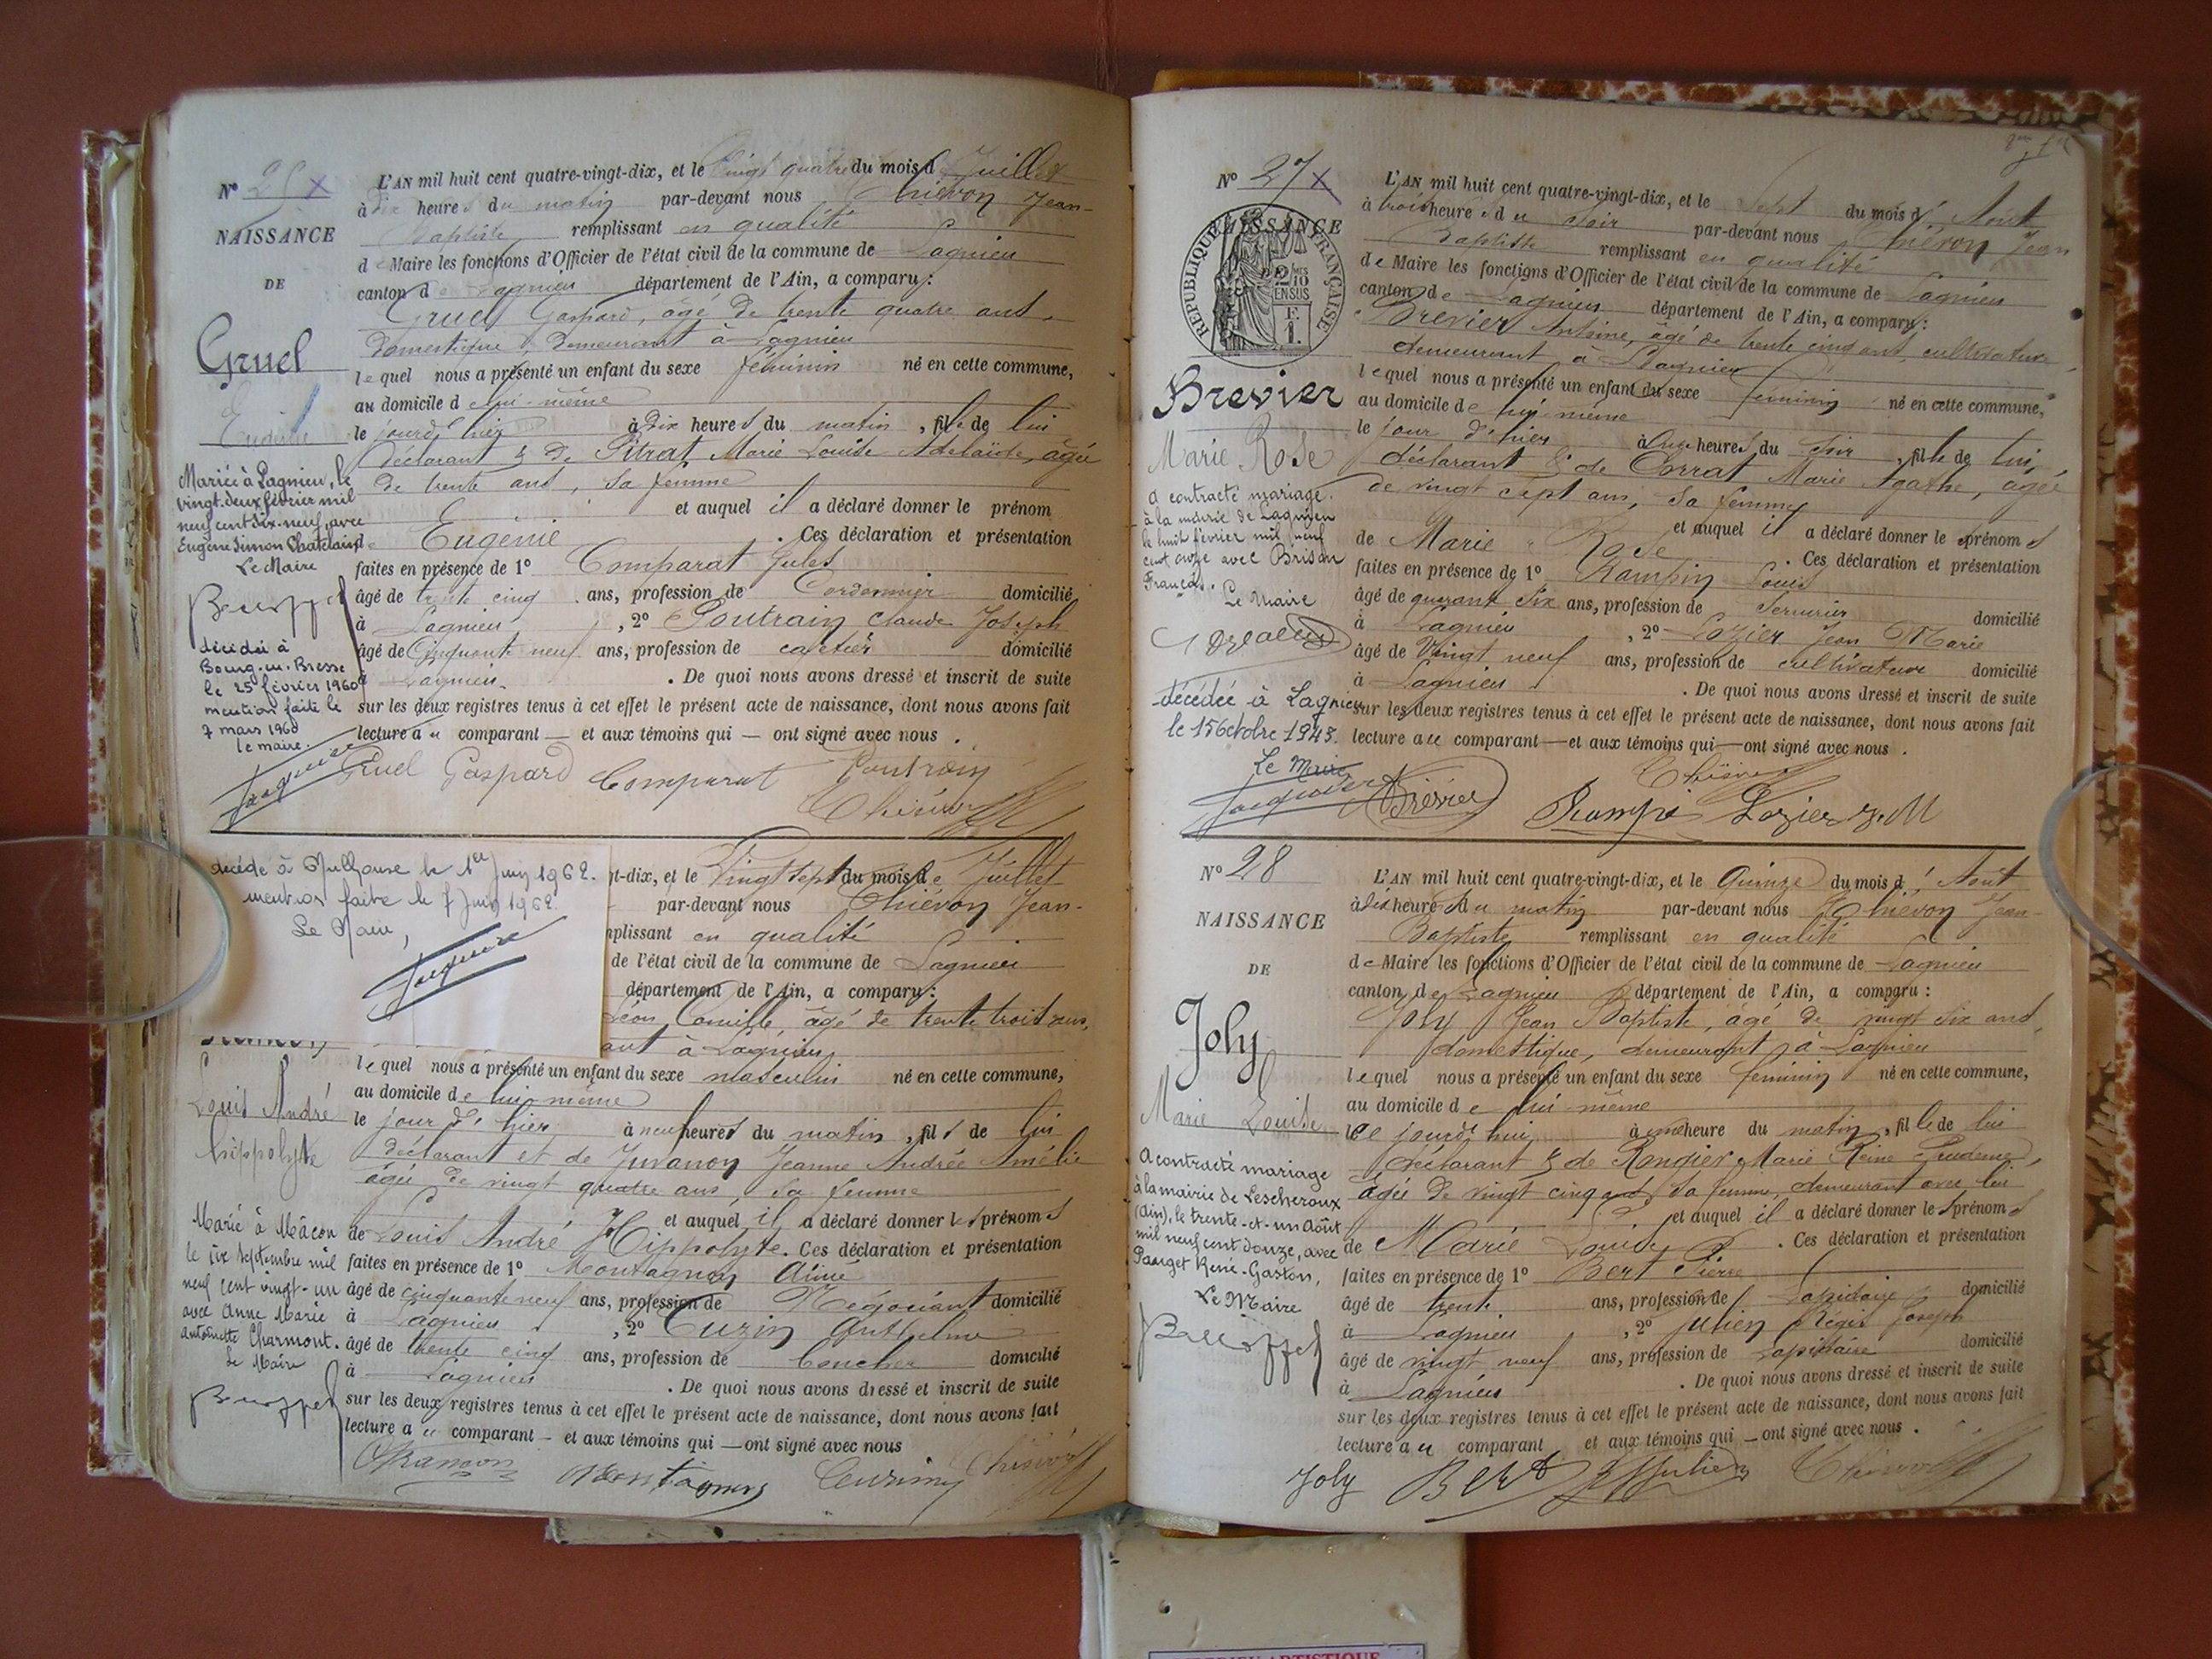 N° 25 x
NAISSANCE
DE
Gruel
Eugénie
Mariée à Lagnieu, le
vingt-deux février mil
neuf cent dix-neuf, avec
Eugène Simon Chatelain
Le Maire
décédée à
Bourg-en-Bresse
le 25 février 1960
mention faite le
7 mars 1960
le maire.
L'AN mil huit cent quatre-vingt-dix, et le Vingt quatre du mois d Juillet
à dix heures du matin par-devant nous Chiévon Jean-
Baptiste remplissant en qualité
de Maire les fonctions d'Officier de l'état civil de la commune de Lagnieu
canton de Lagnieu département de l'Ain, a comparu :
Gruel Gaspard, âgé de trente quatre ans,
domestique, demeurant à Lagnieu
lequel nous a présenté un enfant du sexe féminin né en cette commune,
au domicile de lui-même
le jour d'hier à dix heures du matin, fille de lui
déclarant & de Pitrat Marie Louise Adelaïde, âgée
de trente ans, sa femme
et auquel il a déclaré donner le prénom
de Eugénie . Ces déclaration et présentation
faites en présence de 1° Comparat Jules
âgé de trente cinq ans, profession de Cordonnier domicilié
à Lagnieu , 2° Poutrain Claude Joseph
âgé de Cinquante neuf ans, profession de cafetier domicilié
à Lagnieu . De quoi nous avons dressé et inscrit de suite
sur les deux registres tenus à cet effet le présent acte de naissance, dont nous avons fait
lecture au comparant — et aux témoins qui — ont signé avec nous .
Gruel Gaspard Comparat Poutrain
Chiévon
décédé à Mulhouse le 1er Juin 1962.
mention faite le 7 Juin 1962
Le Maire,
Louis André
hippolyte
Marié à Mâcon
le six septembre mil
neuf cent vingt-un
avec Anne Marie
Antoinette Charmont.
Le Maire
t-dix, et le Vingt sept du mois de Juillet
par-devant nous Chiévon Jean-
mplissant en qualité
de l'état civil de la commune de Lagnieu
département de l'Ain, a comparu :
Léon Camille, âgé de trente trois ans,
ant à Lagnieu
lequel nous a présenté un enfant du sexe masculin né en cette commune,
au domicile de lui-même
le jour d'hier à neuf heures du matin, fils de lui
déclarant et de Juvanon Jeanne Andrée Amélie
âgée de vingt quatre ans, sa femme
et auquel il a déclaré donner les prénoms
de Louis André Hippolyte. Ces déclaration et présentation
faites en présence de 1° Montagnon Aimé
âgé de cinquante neuf ans, profession de Négociant domicilié
à Lagnieu , 2° Cuzin Anthelme
âgé de trente cinq ans, profession de boucher domicilié
à Lagnieu . De quoi nous avons dressé et inscrit de suite
sur les deux registres tenus à cet effet le présent acte de naissance, dont nous avons fait
lecture au comparant — et aux témoins qui — ont signé avec nous
Montagnon Cuzin Chiévon
N° 27 x
NAISSANCE
REPUBLIQUE FRANÇAISE
2/10MES
EN SUS
F.
1.
Brevier
Marie Rose
a contracté mariage
à la mairie de Lagnieu
le huit février mil neuf
cent onze avec Brison
François.
Le Maire
décédée à Lagnieu
le 15 octobre 1943.
Le Maire
L'AN mil huit cent quatre-vingt-dix, et le Sept du mois d'Août
à trois heures du soir par-devant nous Chiévon Jean
Baptiste remplissant en qualité
de Maire les fonctions d'Officier de l'état civil de la commune de Lagnieu
canton de Lagnieu département de l'Ain, a comparu :
Brevier Antoine, âgé de trente cinq ans, cultivateur
demeurant à Lagnieu
lequel nous a présenté un enfant du sexe féminin né en cette commune,
au domicile de lui-même
le jour d'hier à onze heures du soir, fille de lui
déclarant & de Corrat Marie Agathe, âgée
de vingt sept ans, sa femme
et auquel il a déclaré donner les prénoms
de Marie Rose . Ces déclaration et présentation
faites en présence de 1° Rampin Louis
âgé de quarante six ans, profession de Serrurier domicilié
à Lagnieu , 2° Lozier Jean Marie
âgé de Vingt neuf ans, profession de cultivateur domicilié
à Lagnieu . De quoi nous avons dressé et inscrit de suite
sur les deux registres tenus à cet effet le présent acte de naissance, dont nous avons fait
lecture au comparant — et aux témoins qui — ont signé avec nous .
Chiévon
Brévier Rampi Lozier J. M
N° 28
NAISSANCE
DE
Joly
Marie Louise
A contracté mariage
à la mairie de Lescheroux
(Ain), le trente-et-un Août
mil neuf cent douze, avec
Pauget René-Gaston,
Le Maire
L'AN mil huit cent quatre-vingt-dix, et le Quinze du mois d'Août
à dix heures du matin par-devant nous Chiévon Jean-
Baptiste remplissant en qualité
de Maire les fonctions d'Officier de l'état civil de la commune de Lagnieu
canton de Lagnieu département de l'Ain, a comparu :
Joly Jean Baptiste, âgé de vingt six ans,
domestique, demeurant à Lagnieu
lequel nous a présenté un enfant du sexe féminin né en cette commune,
au domicile de lui-même
le jourd'hui à une heure du matin, fille de lui
déclarant & de Rongier Marie Reine Prudence,
âgée de vingt cinq ans sa femme, demeurant avec lui
et auquel il a déclaré donner les prénoms
de Marie Louise . Ces déclaration et présentation
faites en présence de 1° Bert Pierre
âgé de trente ans, profession de Lapidaire domicilié
à Lagnieu , 2° Julien Régis Joseph
âgé de vingt neuf ans, profession de Lapidaire domicilié
à Lagnieu . De quoi nous avons dressé et inscrit de suite
sur les deux registres tenus à cet effet le présent acte de naissance, dont nous avons fait
lecture au comparant et aux témoins qui — ont signé avec nous .
Joly Bert Julien Chiévon